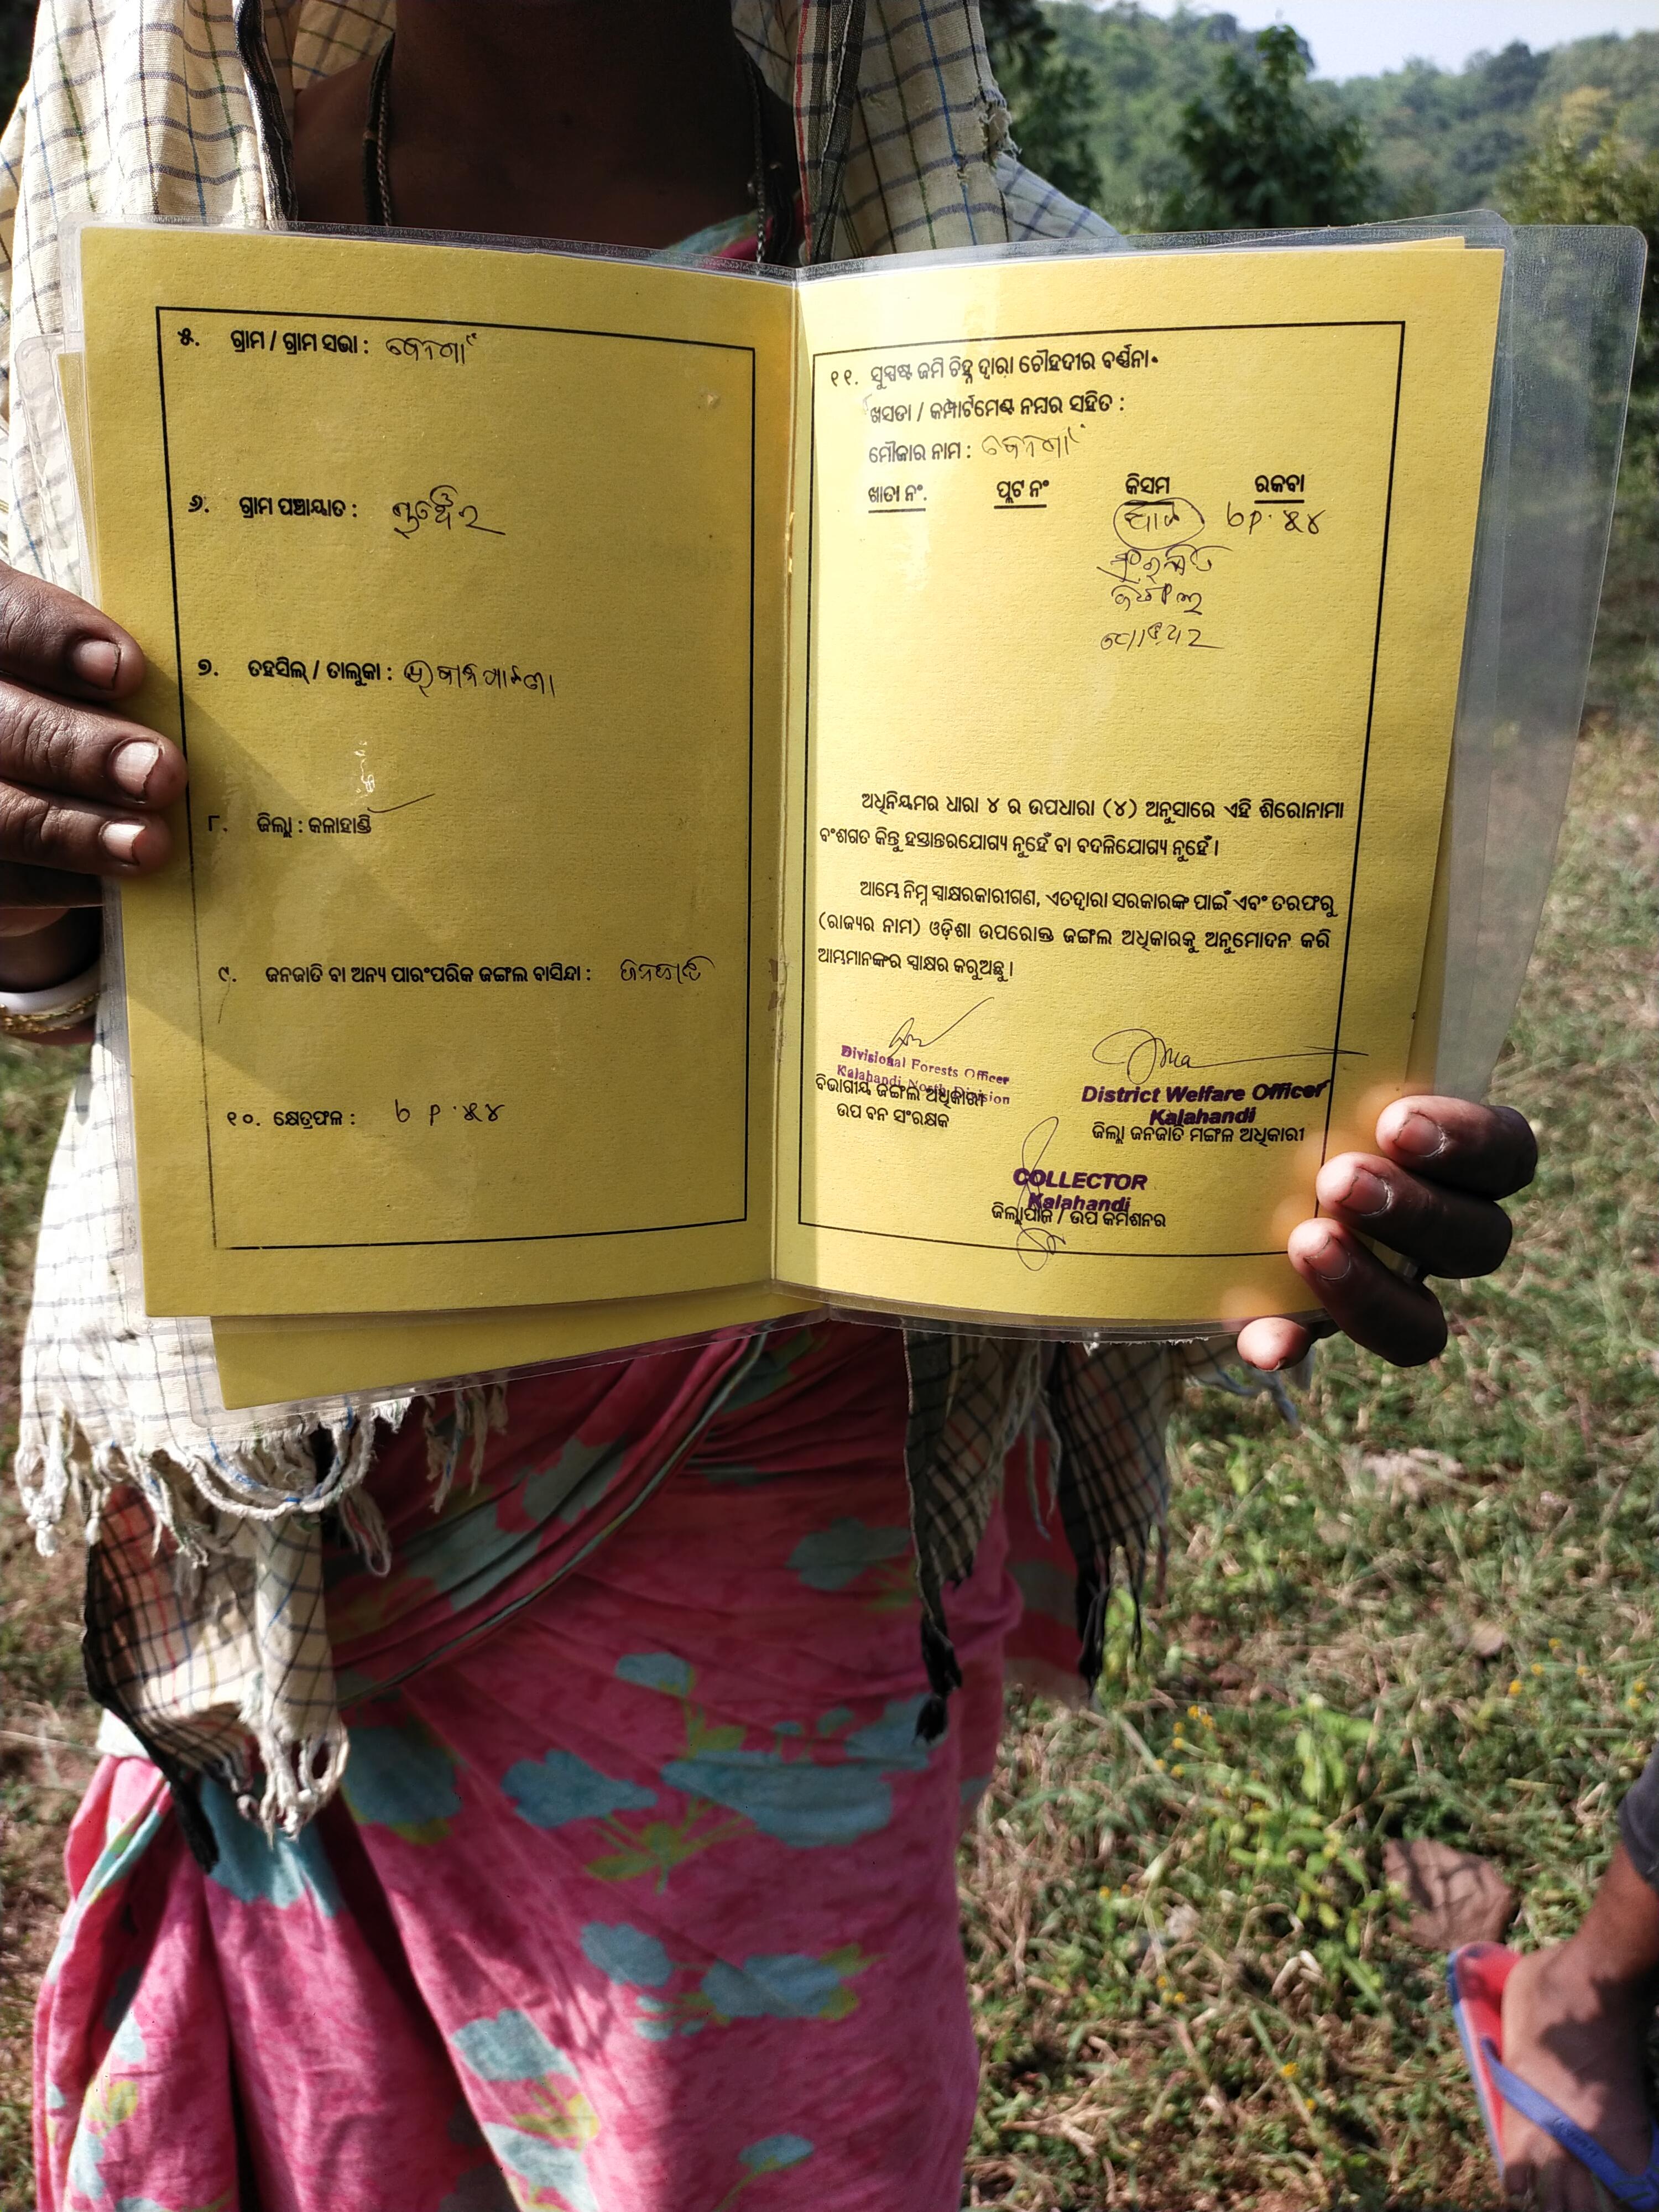 ୫. ଗ୍ରାମ / ଗ୍ରାମ ସଭା : କେନଗାଁ
୬. ଗ୍ରାମ ପଞ୍ଚାୟାତ :
୭. ତହସିଲ୍ / ତାଲୁକା : ଭବାନୀପାଟଣା
୮. ଜିଲ୍ଲା : କଳାହାଣ୍ଡି
୯. ଜନଜାତି ବା ଅନ୍ୟ ପାରଂପରିକ ଜଙ୍ଗଲ ବାସିନ୍ଦା : ଜନଜାତି
୧୦. କ୍ଷେତ୍ରଫଳ :
୧୧. ସୁସ୍ପଷ୍ଟ ଜମି ଚିହ୍ନ ଦ୍ୱାରା ଚୌହଦୀର ବର୍ଣ୍ଣନା
ଖସଡା / କମ୍ପାର୍ଟମେଣ୍ଟ ନମ୍ବର ସହିତ :
ମୌଜାର ନାମ : କେନଗାଁ
ଖାତା ନଂ. ପ୍ଲଟ ନଂ କିସମ ରକବା
ସଂରକ୍ଷିତ
ଜଙ୍ଗଲ
ଅଧିନିୟମର ଧାରା ୪ ର ଉପଧାରା (୪) ଅନୁସାରେ ଏହି ଶିରୋନାମା
ବଂଶଗତ କିନ୍ତୁ ହସ୍ତାନ୍ତରଯୋଗ୍ୟ ନୁହେଁ ବା ବଦଳିଯୋଗ୍ୟ ନୁହେଁ ।
ଆମ୍ଭେ ନିମ୍ନ ସ୍ୱାକ୍ଷରକାରୀଗଣ, ଏତଦ୍ୱାରା ସରକାରଙ୍କ ପାଇଁ ଏବଂ ତରଫରୁ
(ରାଜ୍ୟର ନାମ) ଓଡ଼ିଶା ଉପରୋକ୍ତ ଜଙ୍ଗଲ ଅଧିକାରକୁ ଅନୁମୋଦନ କରି
ଆମ୍ଭମାନଙ୍କର ସ୍ୱାକ୍ଷର କରୁଅଛୁ ।
Divisional Forests Officer
Kalahandi North Division
ବିଭାଗୀୟ ଜଙ୍ଗଲ ଅଧିକାରୀ
ଉପ ବନ ସଂରକ୍ଷକ
District Welfare Officer
Kalahandi
ଜିଲ୍ଲା ଜନଜାତି ମଙ୍ଗଳ ଅଧିକାରୀ
COLLECTOR
Kalahandi
ଜିଲ୍ଲାପାଳ / ଉପ କମିଶନର